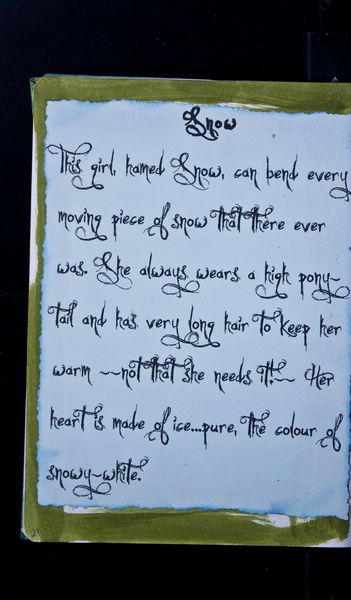 Snow
This girl, named Snow, can bend every
moving piece of snow that there ever
was. She always wears a high pony~
tail and has very long hair to keep her
warm ~~not that she needs it!~~ Her
heart is made of ice...pure, the colour of
snowy~white.